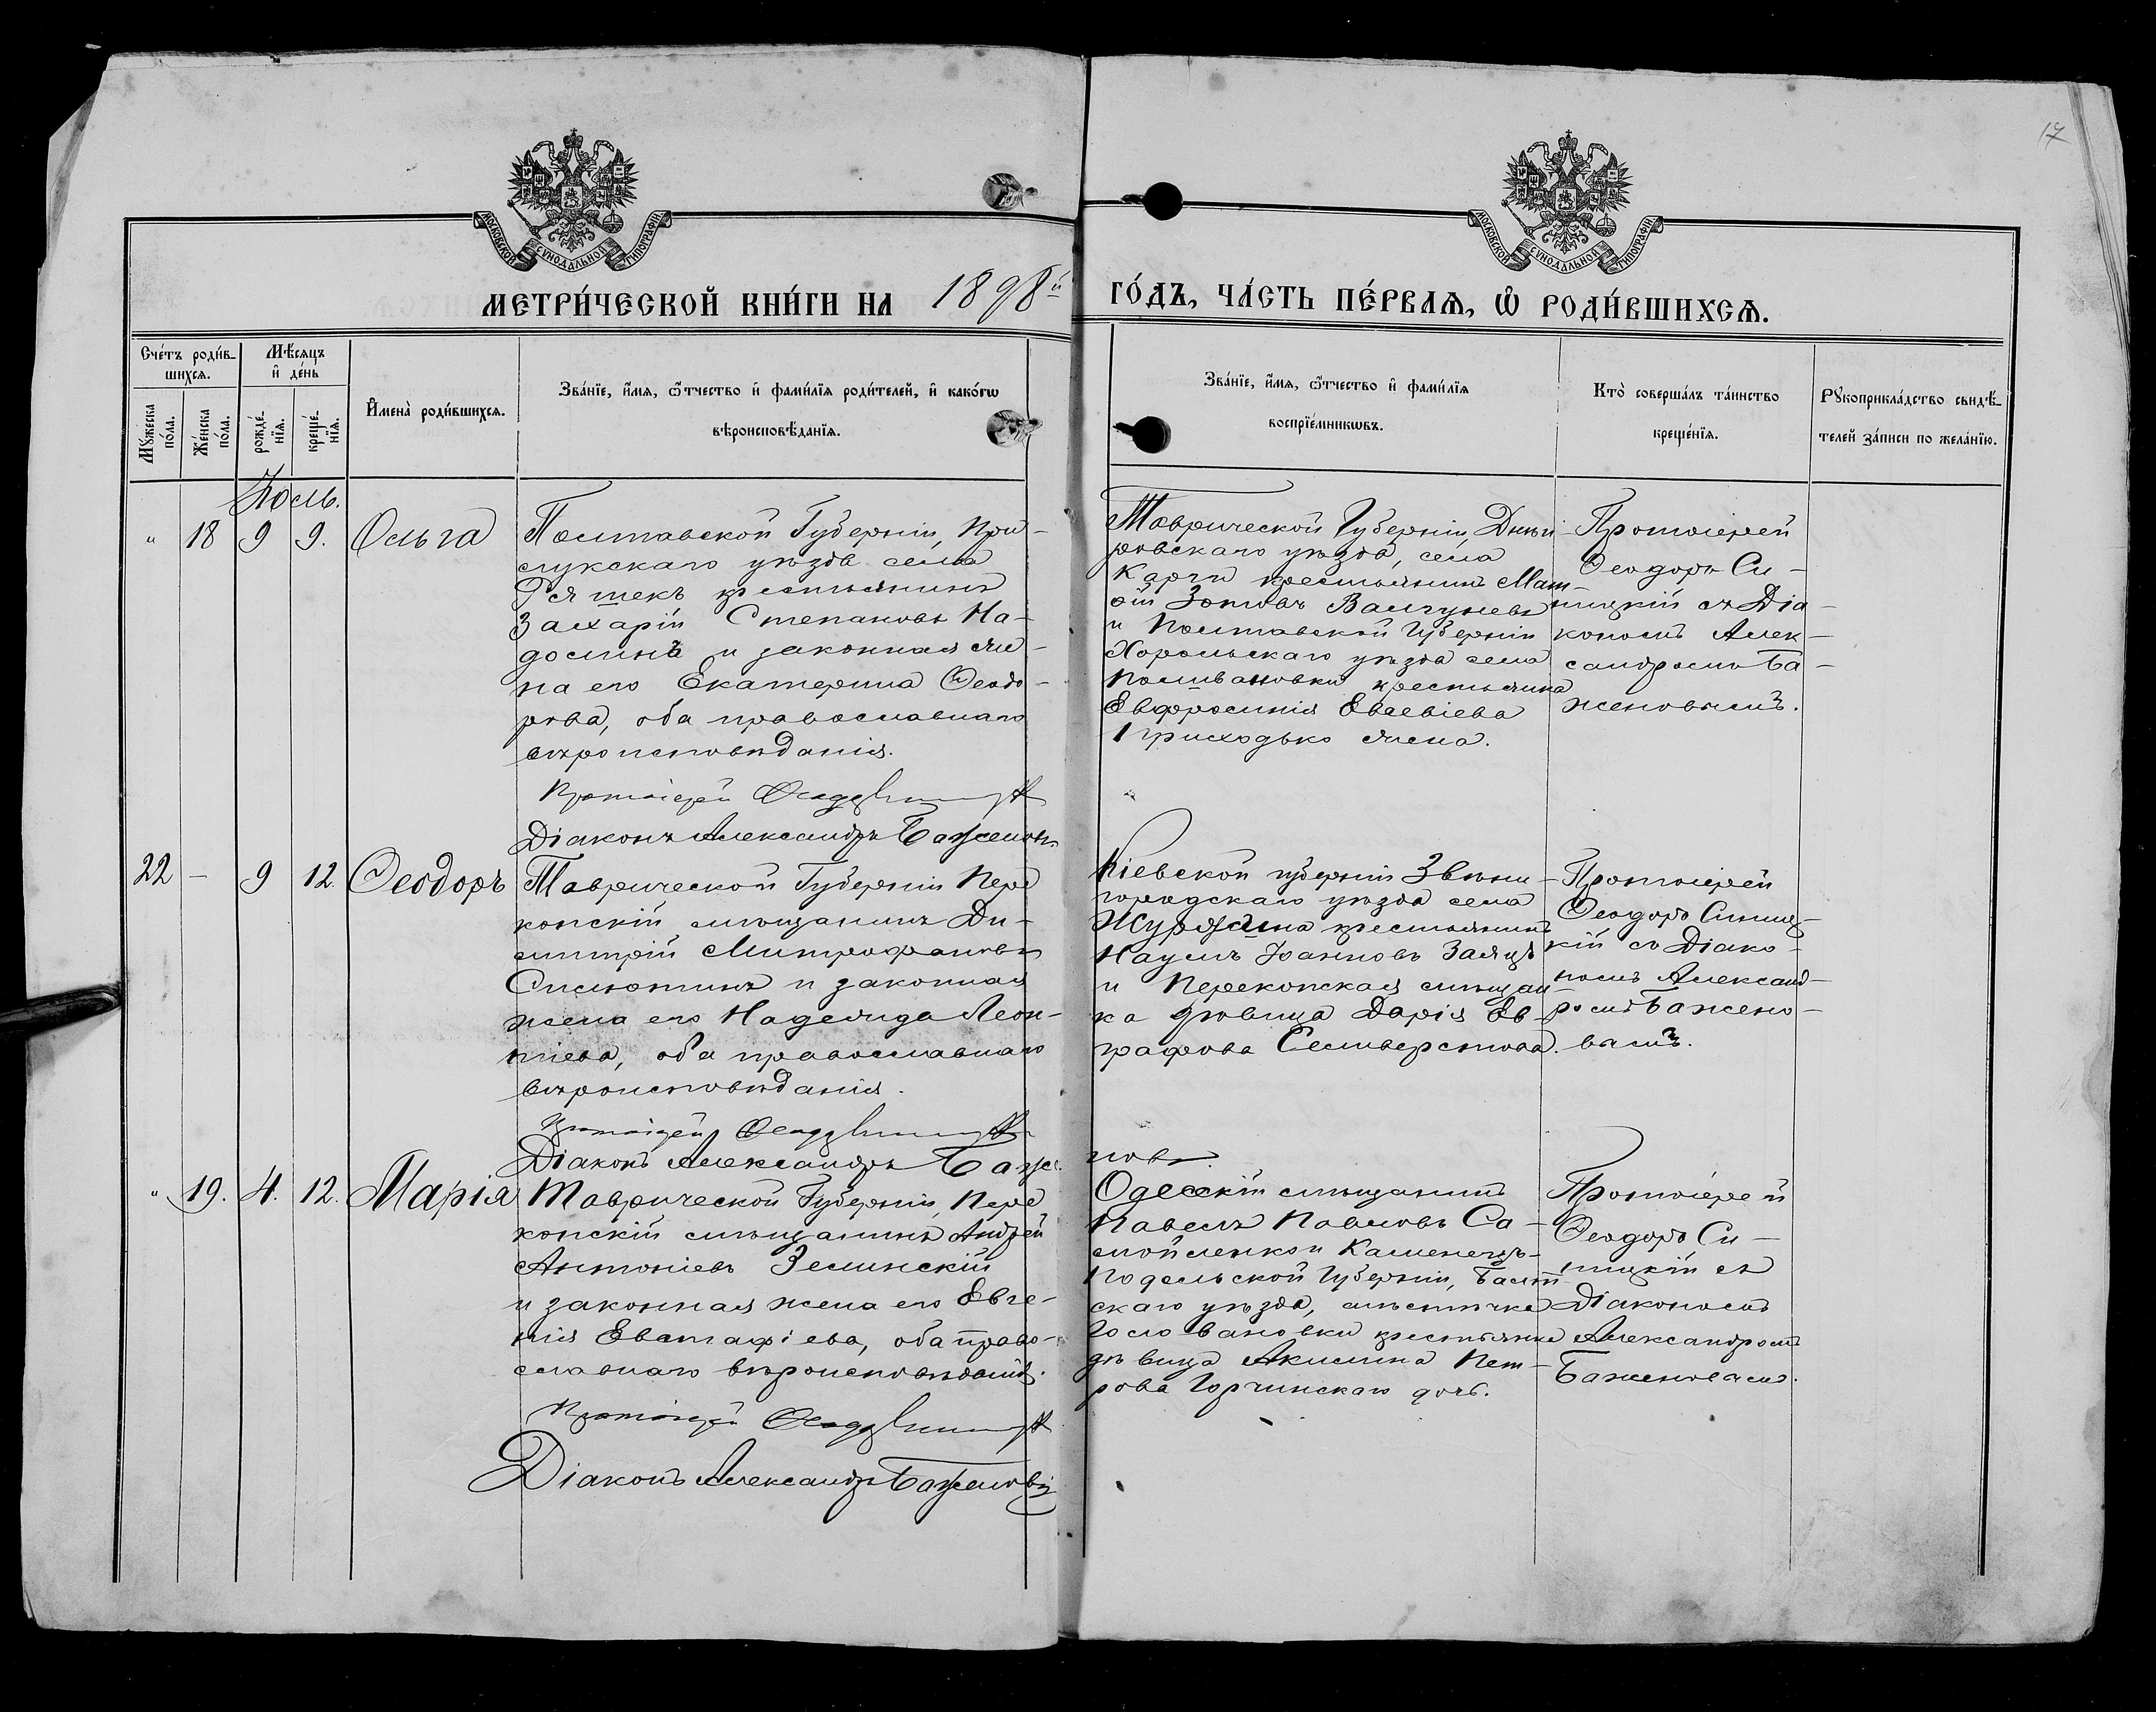 17
МОСКОВСКОЙ СѴНОДАЛЬНОЙ ТИПОГРАФІИ
МОСКОВСКОЙ СѴНОДАЛЬНОЙ ТИПОГРАФІИ
МЕТРИ́ЧЕСКОЙ КНИ́ГИ НА 1898й ГО́ДЪ, ЧА́СТЬ ПЕ́РВАѦ, Ѡ҆ РОДИ́ВШИХСѦ.
Сче́тъ роди́в-
шихсѧ.
Мѣ́сѧцъ
и҆ де́нь
Мꙋ́жеска по́ла.
Же́нска по́ла.
рожде́-
нїѧ.
креще́-
нїѧ.
И҆мена̀ роди́вшихсѧ.
Зва́нїе, и҆́мѧ, ѻ҆́тчество и҆ фами́лїѧ роди́телей, и҆ како́гѡ
вѣроисповѣ́данїѧ.
Зва́нїе, и҆́мѧ, ѻ҆́тчество и҆ фами́лїѧ
воспрїе́мникѡвъ.
Кто̀ соверша́лъ та́инство
креще́нїѧ.
Рꙋкоприкла́дство свидѣ́-
телей за́писи по жела́нїю.
Іюль.
" 18 9 9. Ольга
Полтавской Губерніи, При-
лукскаго уѣзда села
крестьянинъ
Захарій Степановъ На-
долинъ и законная же-
на его Екатерина Ѳеодо-
рова, оба православнаго
вѣроисповѣданія.
Протоіерей Ѳеодоръ
Діаконъ Александръ Баженовъ
Таврической Губерніи, Днѣп-
ровскаго уѣзда, села
крестьянинъ Мат-
ѳій Зотовъ
и Полтавской Губерніи
Хорольскаго уѣзда села
крестьянина
Евфросинія Евсевіева
Присходько жена.
Протоіерей
Ѳеодоръ Си-
ницкій съ Діа-
кономъ Алек-
сандромъ Ба-
женовымъ.
22 — 9 12. Ѳеодоръ
Таврической Губерніи Пере
копскій мѣщанинъ Ди-
митрій Митрофановъ
и законная
жена его Надежда Леон-
тіева, оба православнаго
вѣроисповѣданія.
Протоіерей Ѳеодоръ
Діаконъ Александръ Баже
новъ.
Кіевской губерніи Звени-
городскаго уѣзда села
крестьянинъ
Наумъ Іоанновъ Заяцъ
и Перекопская мѣщан
ка дѣвица Дарія Ев-
графова Селиверстова.
Протоіерей
Ѳеодоръ Синиц-
кій съ Діако-
номъ Александ-
ромъ Бажено-
вымъ.
" 19. 4. 12. Марія
Таврической Губерніи, Пере
копскій мѣщанинъ Андрей
Антоніевъ Зелинскій
и законная жена его Евге-
нія Евстафіева, оба право-
славнаго вѣроисповѣданія.
Протоіерей Ѳеодоръ
Діаконъ Александръ Баженовъ
Одесскій мѣщанинъ
Павелъ Павловъ Са-
мойленко и Каменецъ-
Подольской Губерніи, Балт-
скаго уѣзда, мѣстечка
крестьянка
дѣвица Акилина Пет-
рова Горчинскаго дочь.
Протоіерей
Ѳеодоръ Си-
ницкій съ
Діакономъ
Александромъ
Баженовымъ.